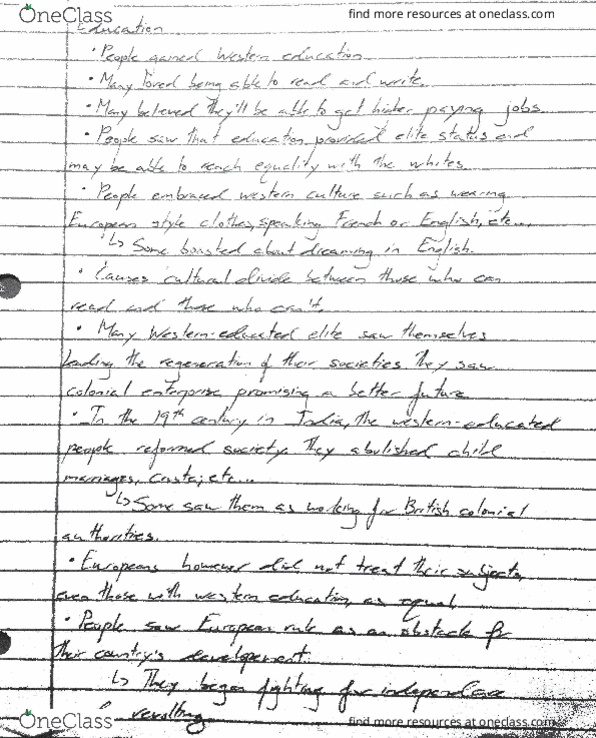 OneClass
find more resources at oneclass.com
Education
• People gained Western education
• Many loved being able to read and write.
• Many believed they'll be able to get higher paying jobs.
• People saw that education provided elite status and
may be able to reach equality with the whites.
• People embraced western culture such as wearing
European style clothes, speaking French or English, etc...
↳ Some boasted about dreaming in English.
• Causes cultural divide between those who can
read and those who can't.
• Many Western-educated elite saw themselves
leading the regeneration of their societies. They saw
colonial enterprise promising a better future
• In the 19th century in India, the western-educated
people reformed society. They abolished child
marriages, caste, etc...
↳ Some saw them as working for British colonial
authorities.
• Europeans however did not treat their subjects,
even those with western education, as equal.
• People saw European rule as an obstacle for
their country's development.
↳ They began fighting for independence
revolting
OneClass
find more resources at oneclass.com